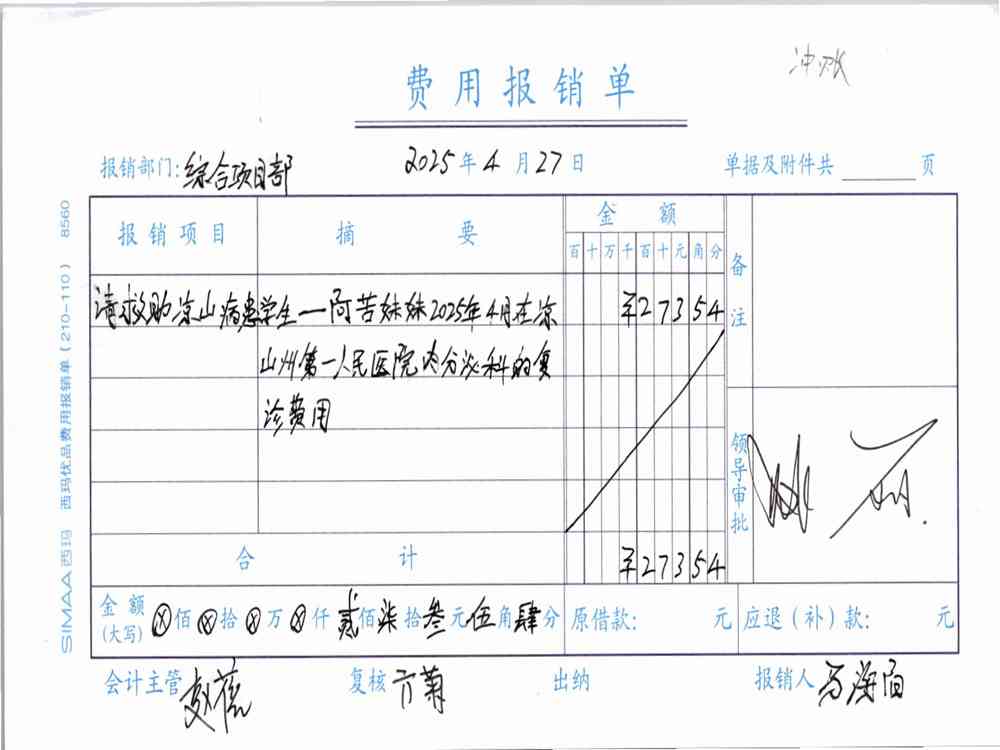 冲账
费用报销单
报销部门:综合项目部 2025年4月27日 单据及附件共 页
报销项目 摘要 金额 备注
百十万千百十元角分
请救助凉山病患学生一阿苦妹妹2025年4月在凉 ¥27354
山州第一人民医院内分泌科的复
诊费用
领导审批
合计 ¥27354
金额(大写) ⊗佰⊗拾⊗万⊗仟贰佰柒拾叁元伍角肆分 原借款: 元 应退(补)款: 元
会计主管 复核 出纳 报销人
SIMAA西玛 西玛优品费用报销单(210-110) 8560